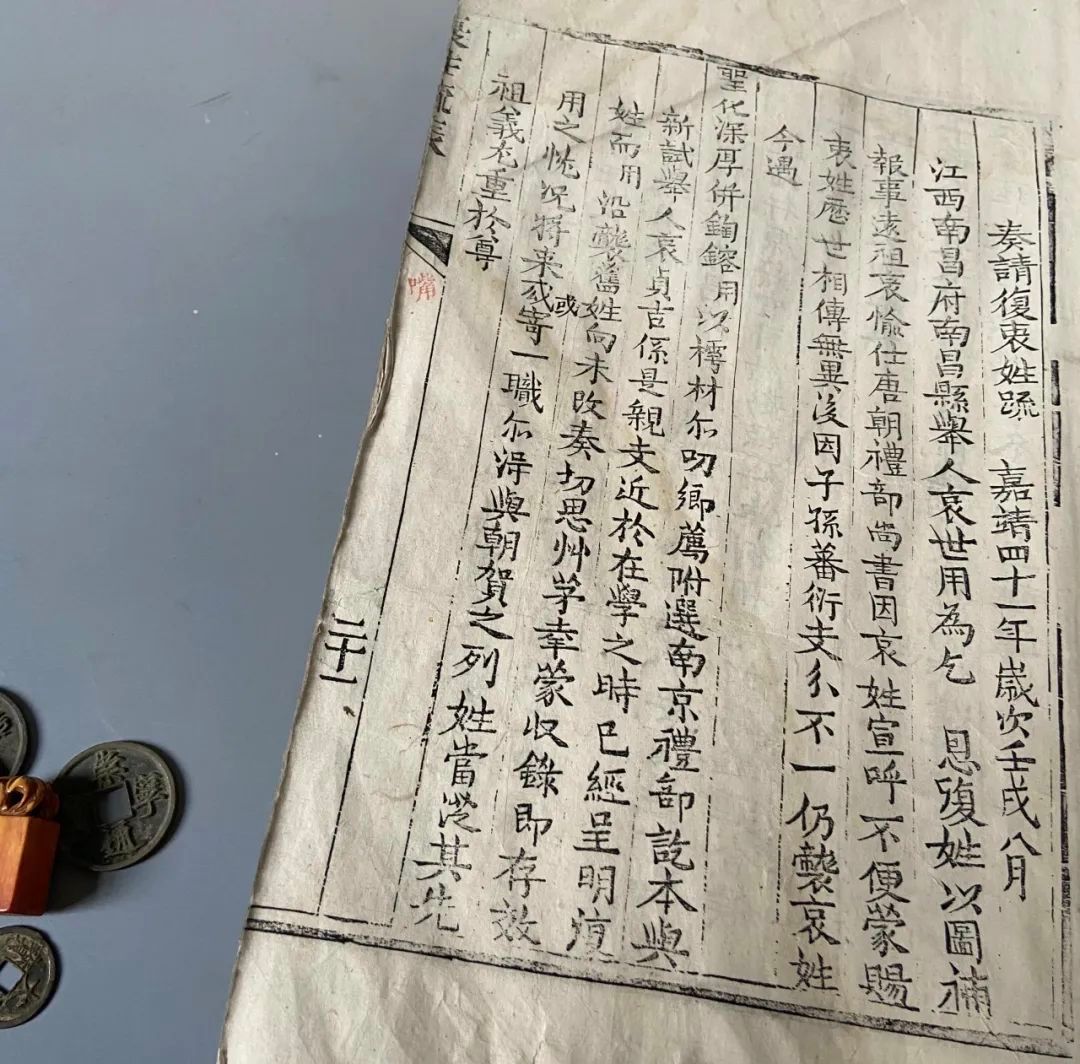 奏請復衷姓疏 嘉靖四十一年歲次壬戌八月
江西南昌府南昌縣舉人哀世用為乞 恩復姓以圖補
報事遠祖哀愉仕唐朝禮部尚書因哀姓宣呼不便蒙賜
衷姓歷世相傳無異後因子孫蕃衍支分不一仍襲哀姓
今遇
聖化深厚併鈞鎔用以樗材尒叨鄉薦附選南京禮部訖本與
新試舉人哀貞吉係是親支近於在學之時已經呈明復
姓而用沿襲舊姓向未改奏切思艸茅幸蒙收錄即存效
用之忱况將来或或寄一職尒淂與朝賀之列姓當從其先
祖義尤重於尊
二十一
嘴